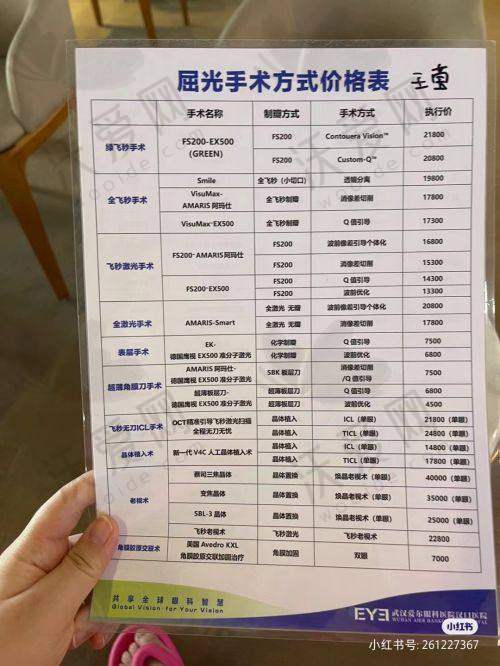 屈光手术方式价格表
手术名称 制瓣方式 手术方式 执行价
绿飞秒手术 FS200-EX500 (GREEN) FS200 Contouera Vision™ 21800
FS200 Custom-Q™ 20800
全飞秒手术 Smile 全飞秒（小切口） 透镜分离 19800
VisuMax-AMARIS 阿玛仕 全飞秒制瓣 消像差切削 17800
VisuMax-EX500 全飞秒制瓣 Q 值引导 17300
飞秒激光手术 FS200-AMARIS阿玛仕 FS200 波前像差引导个体化 16800
FS200 消像差切削 15300
FS200-EX500 FS200 Q 值引导 14300
FS200 波前优化 13300
全激光手术 AMARIS-Smart 全激光 无瓣 波前像差引导个体化 20800
全激光 无瓣 消像差切削 17800
表层手术 EK-德国鹰视 EX500 准分子激光 化学制瓣 Q 值引导 7500
化学制瓣 波前优化 6800
超薄角膜刀手术 AMARIS 阿玛仕-德国鹰视 EX500 准分子激光 SBK 板层刀 消像差切削/Q 值引导 7500
超薄板层刀-德国鹰视 EX500 准分子激光 超薄板层刀 Q 值引导 6800
超薄板层刀 波前优化 4500
飞秒无刀ICL手术 OCT精准引导飞秒激光扫描全程无刀无忧 晶体植入 ICL（单眼） 21800（单眼）
晶体植入 TICL（单眼） 24800（单眼）
晶体植入术 新一代 V4C 人工晶体植入术 晶体植入 ICL（单眼） 14800（单眼）
晶体植入 TICL（单眼） 17800（单眼）
老视术 蔡司三焦晶体 晶体置换 焕晶老视术（单眼） 40000（单眼）
变焦晶体 晶体置换 焕晶老视术（单眼） 35000（单眼）
SBL-3 晶体 晶体置换 焕晶老视术（单眼） 25000（单眼）
飞秒老视术 飞秒激光 飞秒老视术 22800
角膜胶原交联术 美国 Avedro KXL 角膜胶原交联加固治疗 角膜加固 双眼 7000
共享全球眼科智慧
Global Vision for Your Vision
EYE 武汉爱尔眼科医院汉口医院
小红书
小红书号: 261227367
沃爱网
woaide.com